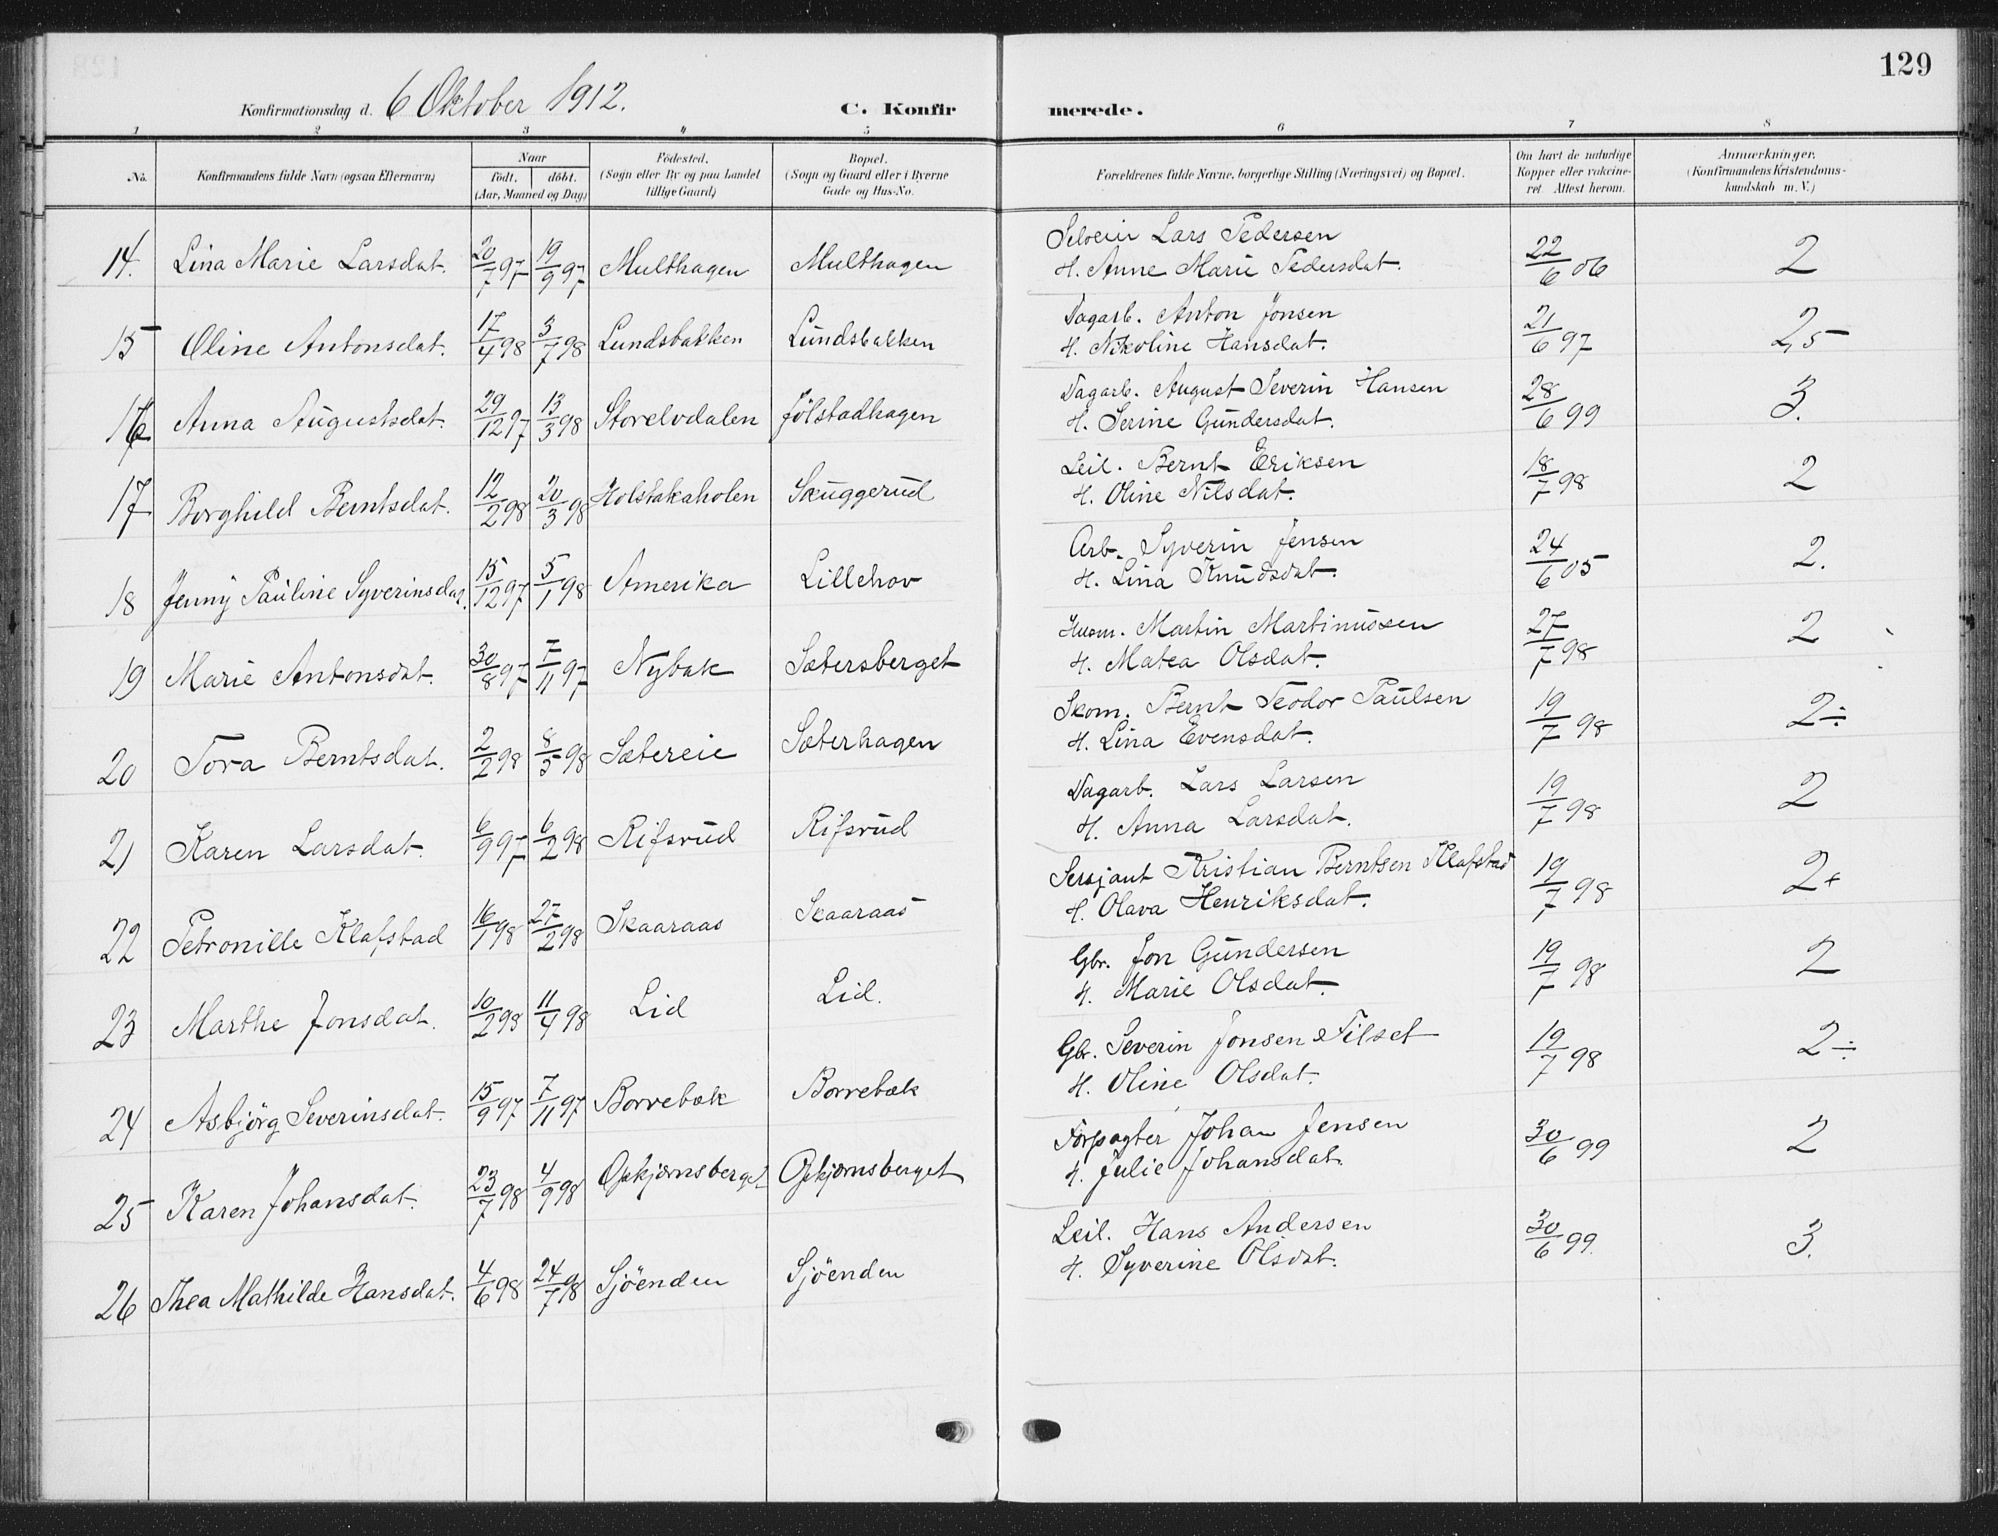 129
Konfirmationsdag d. 6 Oktober 1912. C. Konfirmerede.
1 2 3 4 5 6 7 8
No. Konfirmandens fulde Navn (ogsaa Efternavn) Naar født. døbt. (Aar, Maaned og Dag) Fødested. (Sogn eller By og paa Landet tillige Gaard) Bopæl. (Sogn og Gaard eller i Byerne Gade og Hus-No. Forældrenes fulde Navne, borgerlige Stilling (Næringsvei) og Bopæl. Om havt de naturlige Kopper eller vakcineret Attest herom. Anmærkninger. (Konfirmandens Kristendomskundskab m. V.)
14. Lina Marie Larsdat. 20/7 97 19/9 97 Multhagen Multhagen Selveier Lars Pedersen H. Anne Marie Pedersdat. 22/6 06 2
15 Oline Antonsdat. 17/4 98 3/7 98 Lundsbakken Lundsbakken Dagarb. Anton Jonsen H. Nikoline Hansdat. 21/6 97 2,5
16 Anna Augustsdat. 29/12 97 13/3 98 Storelvdalen Jølstadhagen Dagarb. August Severin Hansen H. Serine Gundersdat. 28/6 99 3.
17 Borghild Berntsdat. 12/2 98 20/3 98 Holstakaholen Skuggerud Leil. Bernt Eriksen H. Oline Nilsdat. 18/7 98 2
18 Jenny Pauline Syverinsdat. 15/12 97 5/1 98 Amerika Lillehov Arb. Syverin Jensen H. Lina Knudsdat. 24/6 05 2.
19 Marie Antonsdat. 30/8 97 7/11 97 Nybak Sætersberget Husm. Martin Martinussen H. Matea Olsdat. 27/7 98 2
20 Tora Berntsdat. 2/2 98 8/5 98 Sætereie Sæterhagen Skom. Bernt Teodor Paulsen H. Lina Evensdat. 19/7 98 2÷
21 Karen Larsdat. 6/9 97 6/2 98 Rifsrud Rifsrud Dagarb. Lars Larsen H. Anna Larsdat. 19/7 98 2
22 Petronille Klafstad 16/1 98 27/2 98 Skaaraas Skaaraas Sersjant Kristian Berntsen Klafstad H. Olava Henriksdat. 19/7 98 2+
23 Marthe Jonsdat. 10/2 98 11/4 98 Lid Lid. Gbr. Jon Gundersen H. Marie Olsdat. 19/7 98 2
24 Asbjörg Severinsdat. 15/9 97 7/11 97 Borrebæk Borrebæk Gbr. Severin Jonsen Filset H. Oline Olsdat. 19/7 98 2÷
25 Karen Johansdat. 23/7 98 4/9 98 Opkjærnsberget Opkjærnsberget Forpagter Johan Jensen H. Julie Johansdat. 30/6 99 2
26 Thea Mathilde Hansdat. 4/6 98 24/7 98 Sjöenden Sjöenden Leil. Hans Andersen H. Syverine Olsdat. 30/6 99. 3.